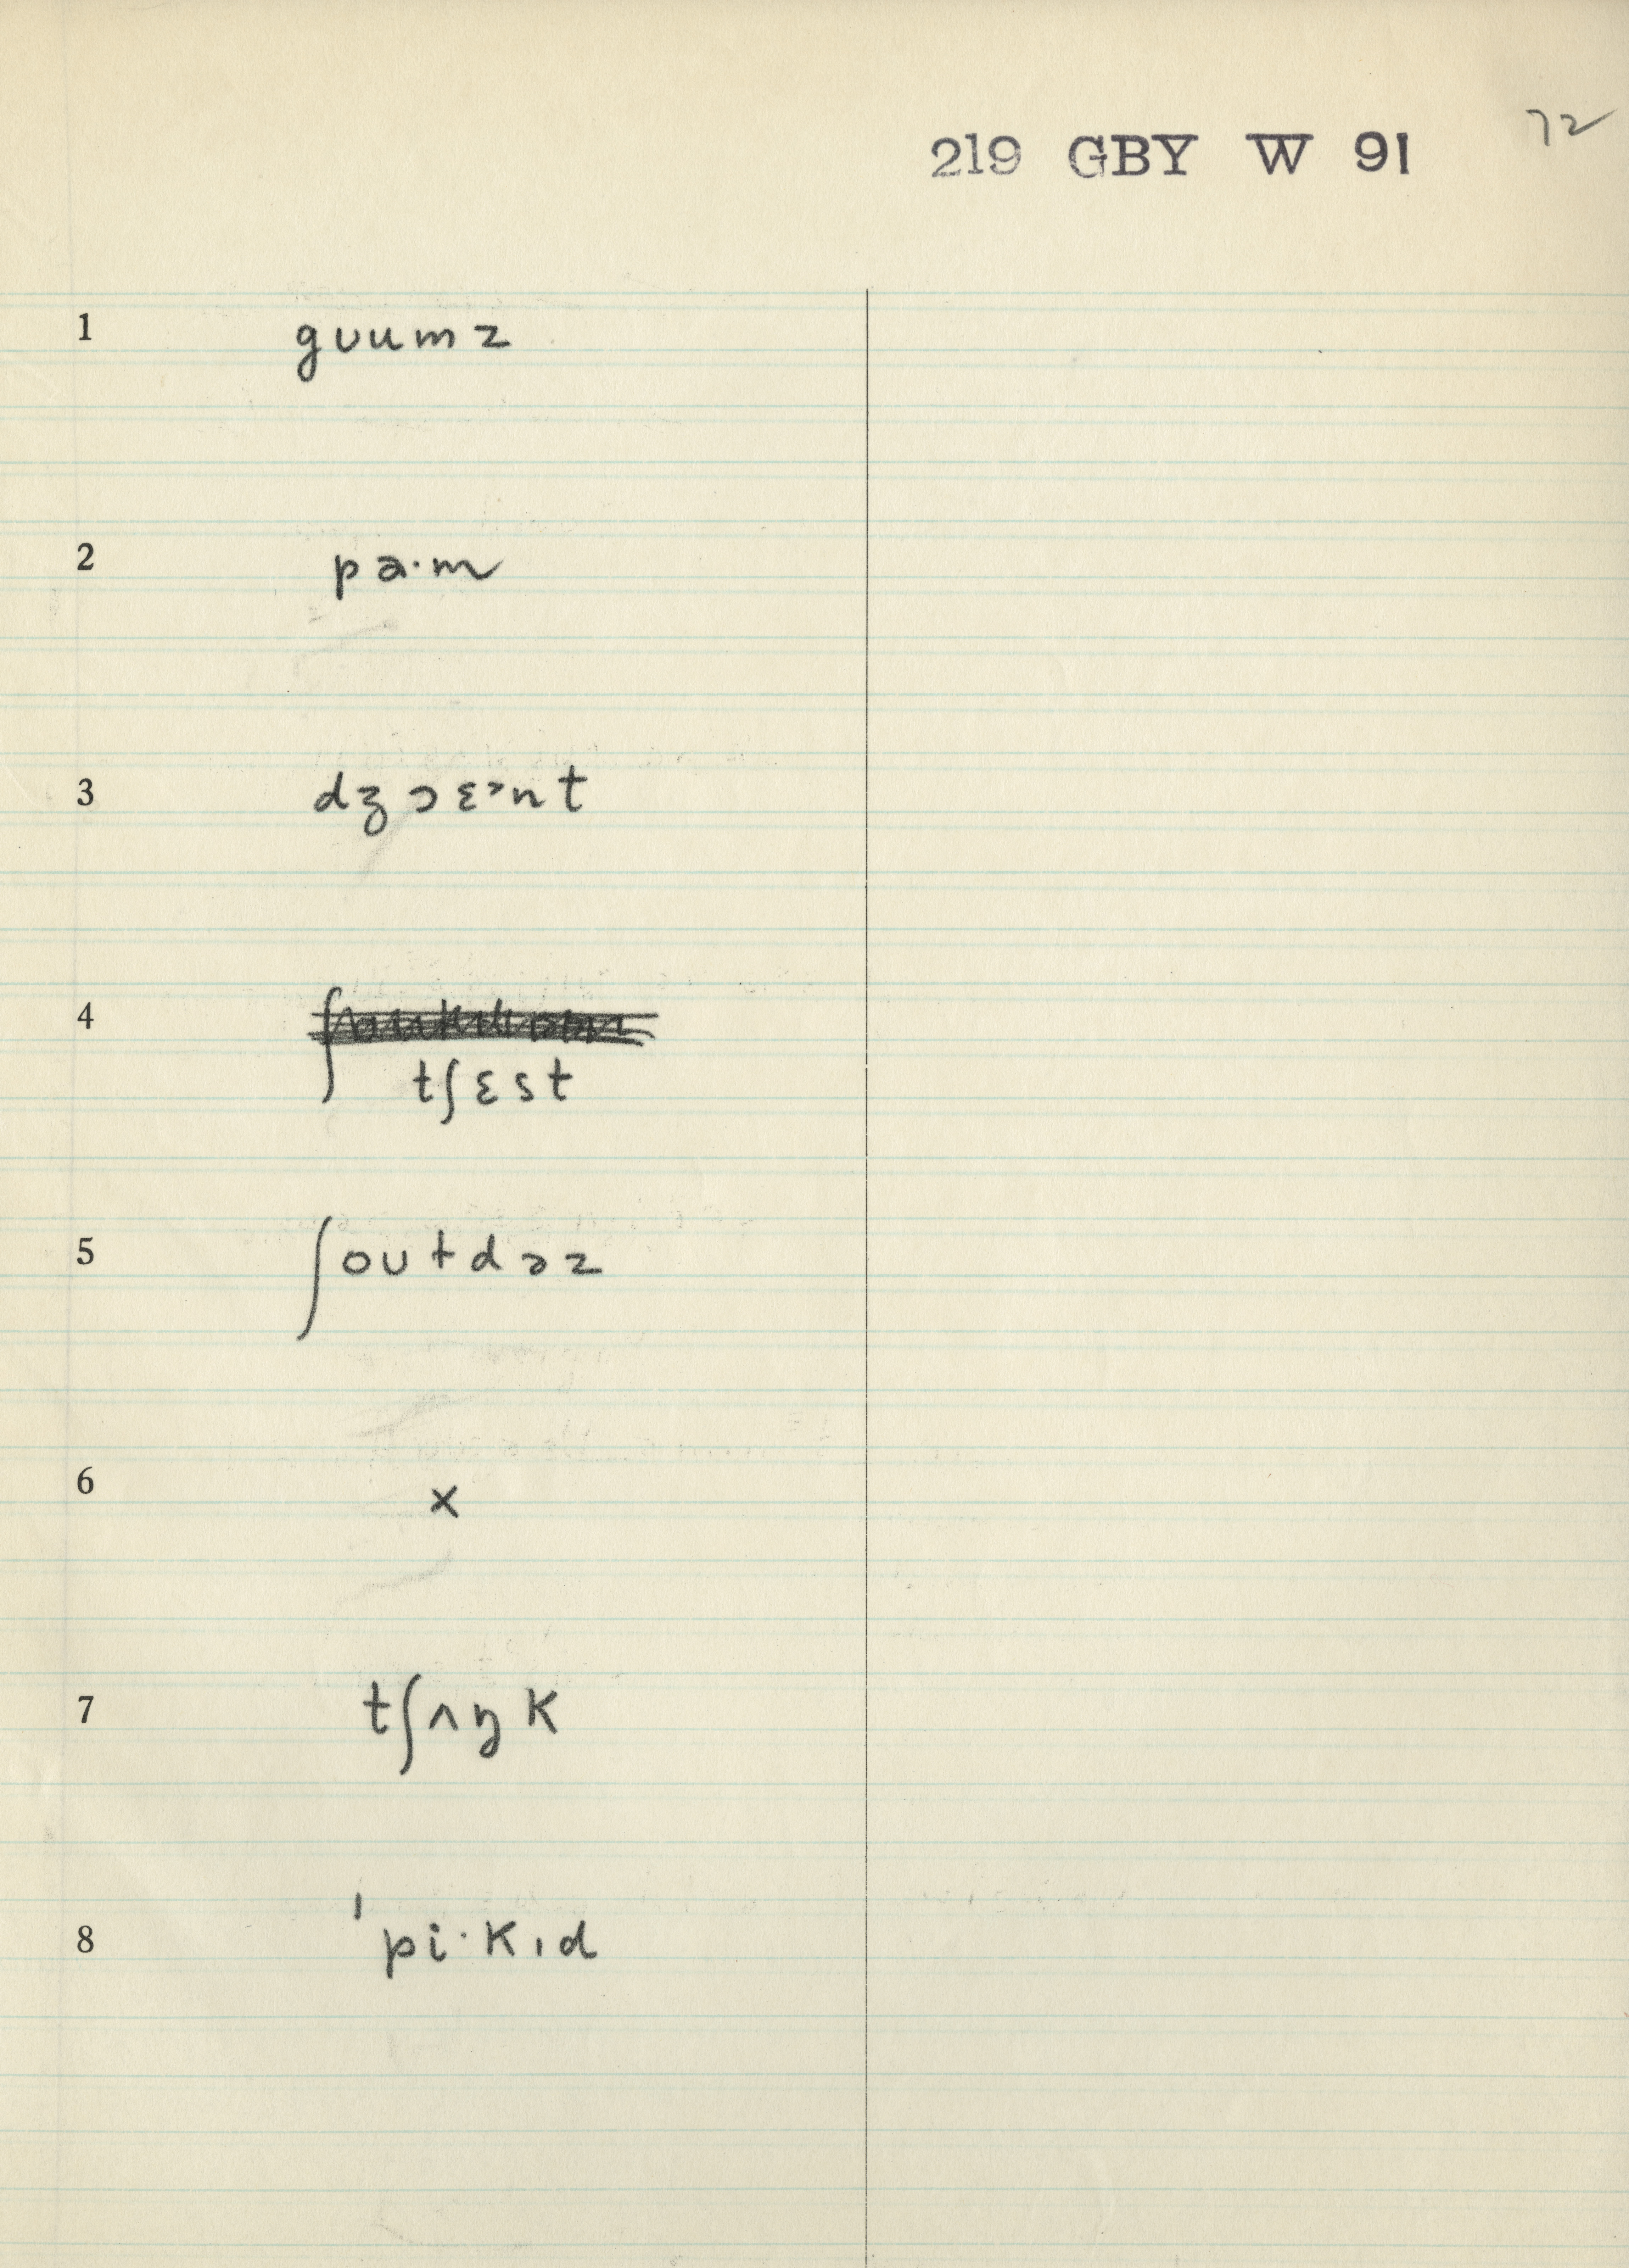 72
219 GBY W 91
1 gʊumz
2 pa·m
3 dʒɔɛ˃nt
4
tʃɛst
5 ʃoʊtdəz
6 x
7 tʃʌŋk
8 ˈpi·kɪd